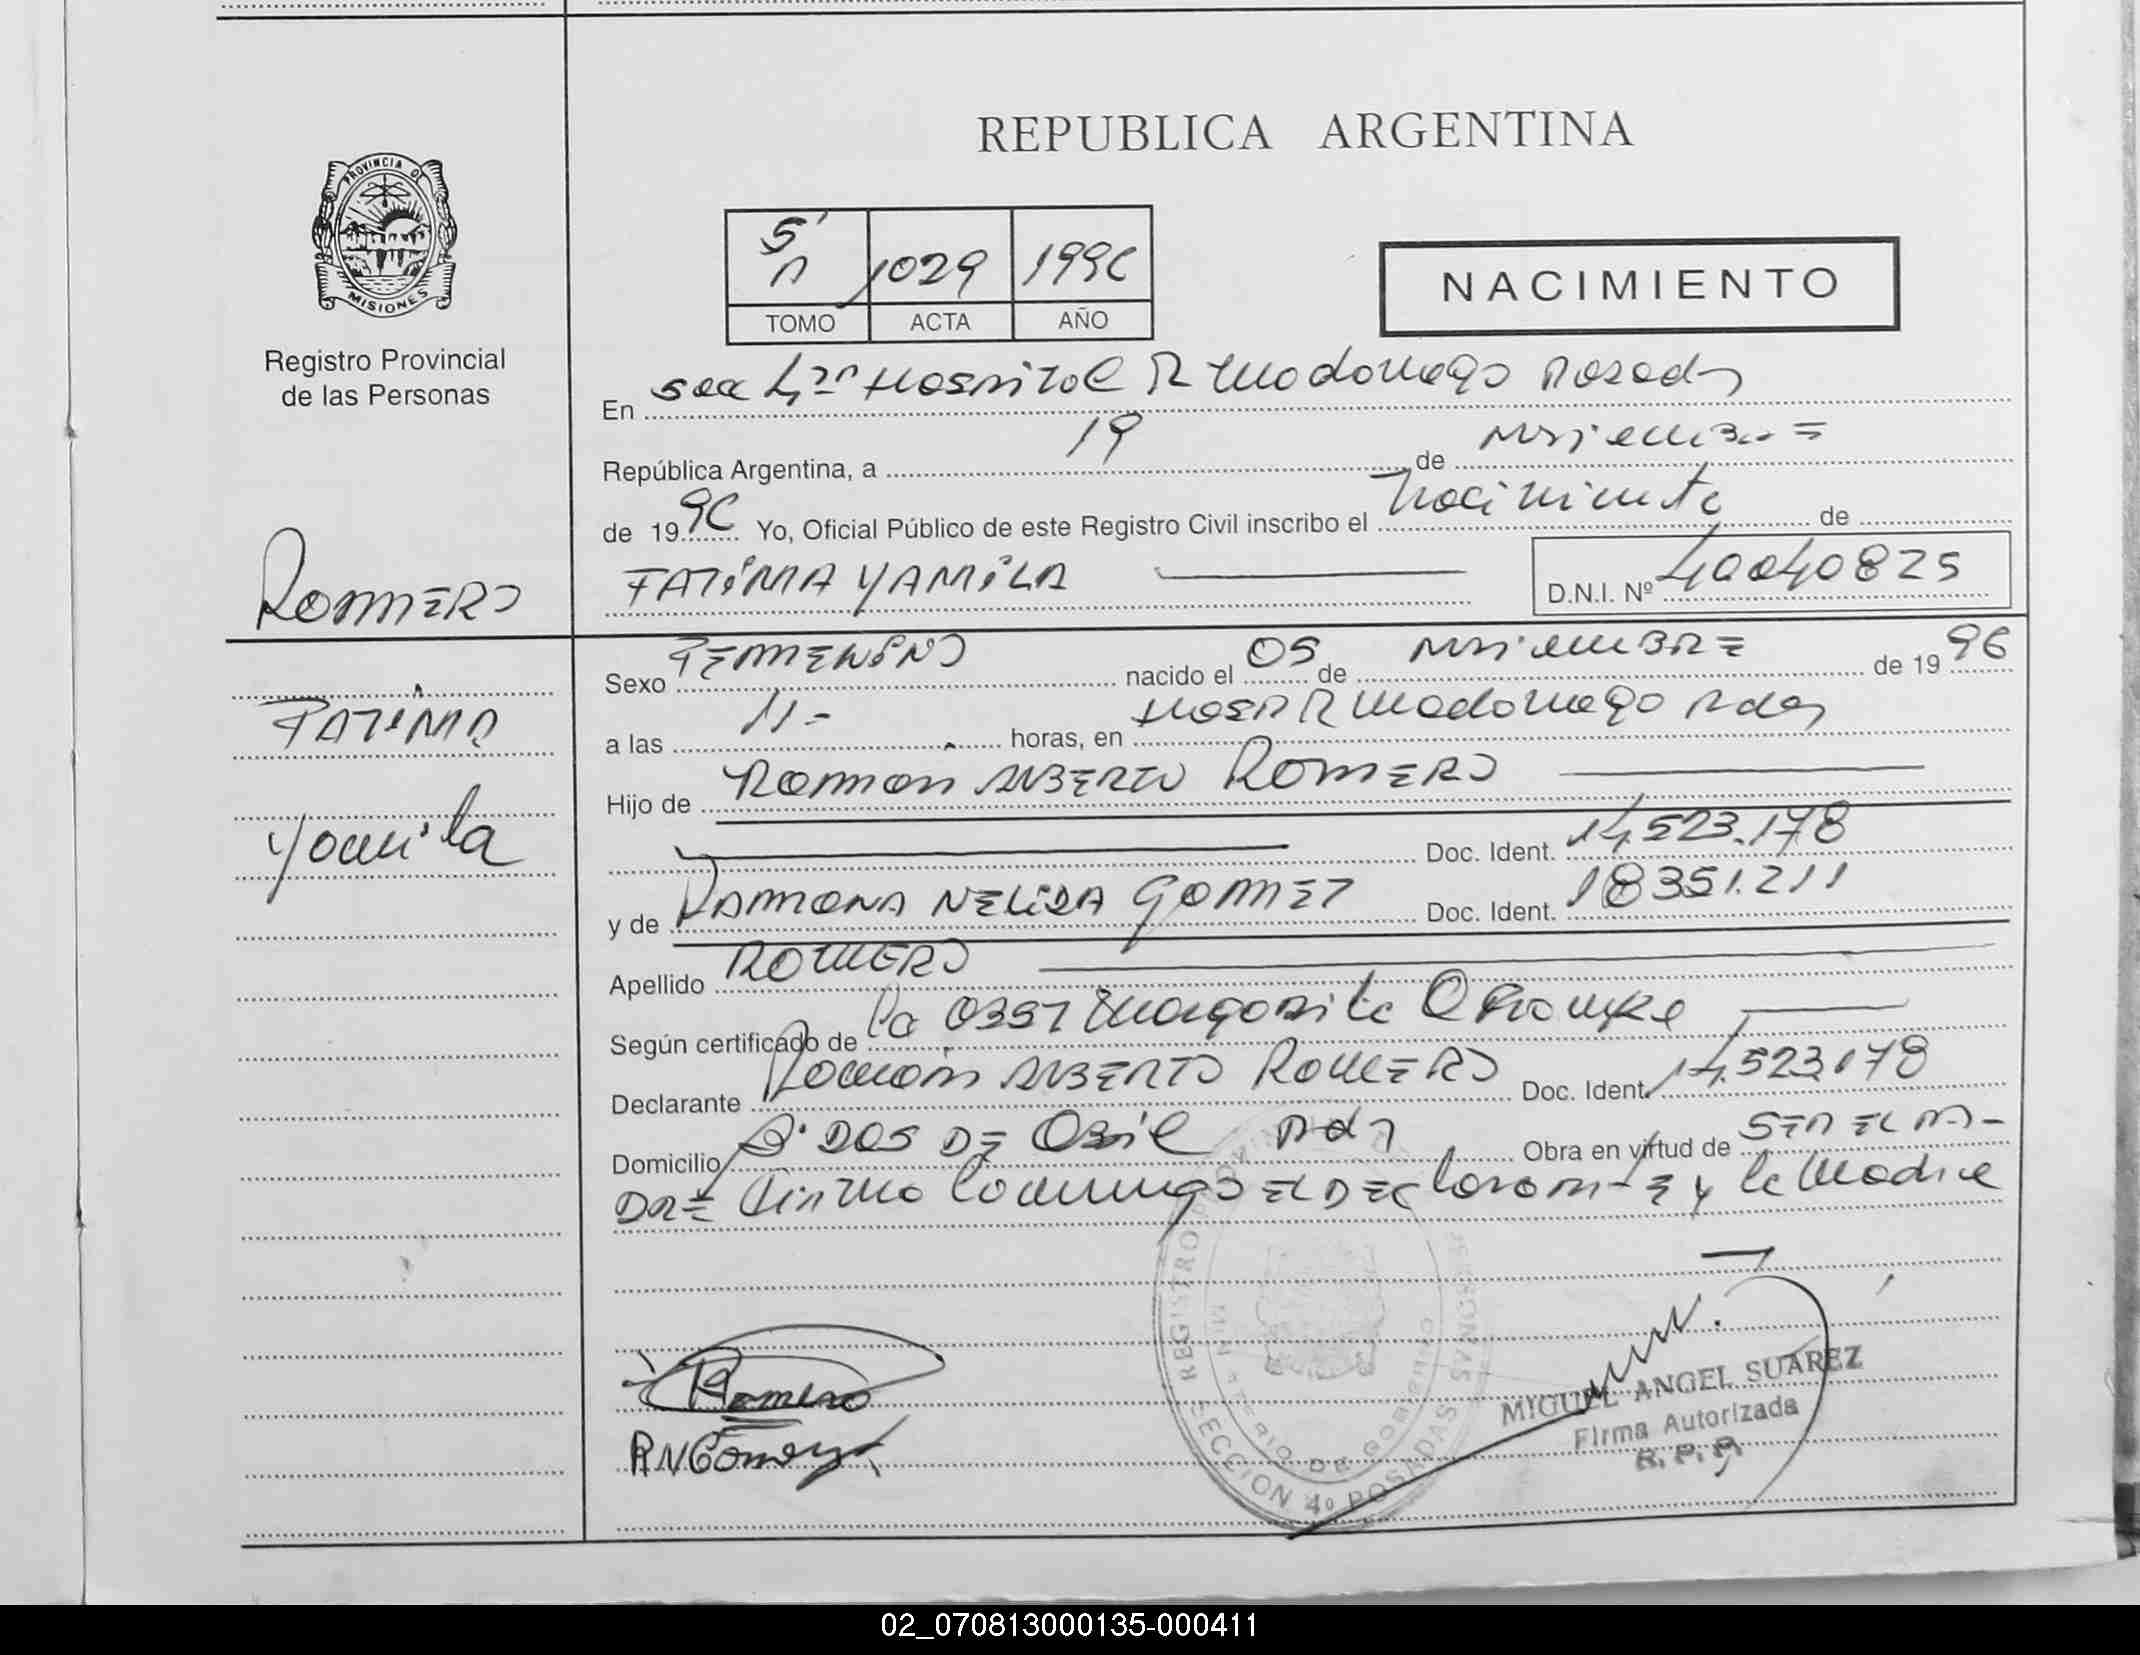 REPUBLICA ARGENTINA
PROVINCIA DE
MISIONES
Registro Provincial
de las Personas
5'
n 1029 1996
TOMO ACTA AÑO
NACIMIENTO
En Secc 4ta Hospital R Madariaga Posadas
República Argentina, a 19 de Noviembre
de 1996 Yo, Oficial Público de este Registro Civil inscribo el Nacimiento de
ROMERO
FATIMA YAMILA
D.N.I. Nº 40040825
Sexo FEMENINO nacido el 05 de Noviembre de 1996
FATIMA
a las 11- horas, en Hosp R Madariaga Pdas
Yamila
Hijo de Ramón Alberto Romero
Doc. Ident. 14,523.178
y de RAMONA NELIDA GOMEZ Doc. Ident. 18351.211
Apellido ROMERO
Según certificado de la Obst Margarita
Declarante Ramón Alberto Romero Doc. Ident. 14,523178
Domicilio DOS DE Abril Pdas Obra en virtud de SER EL PA-
DRE Firma el DEClarante y la Madre
Romero
RNGomez
REGISTRO PROVINCIAL DE LAS PERSONAS
MINISTERIO DE GOBIERNO
SECCION 4º POSADAS
MIGUEL ANGEL SUAREZ
Firma Autorizada
R.P.P.
02_070813000135-000411